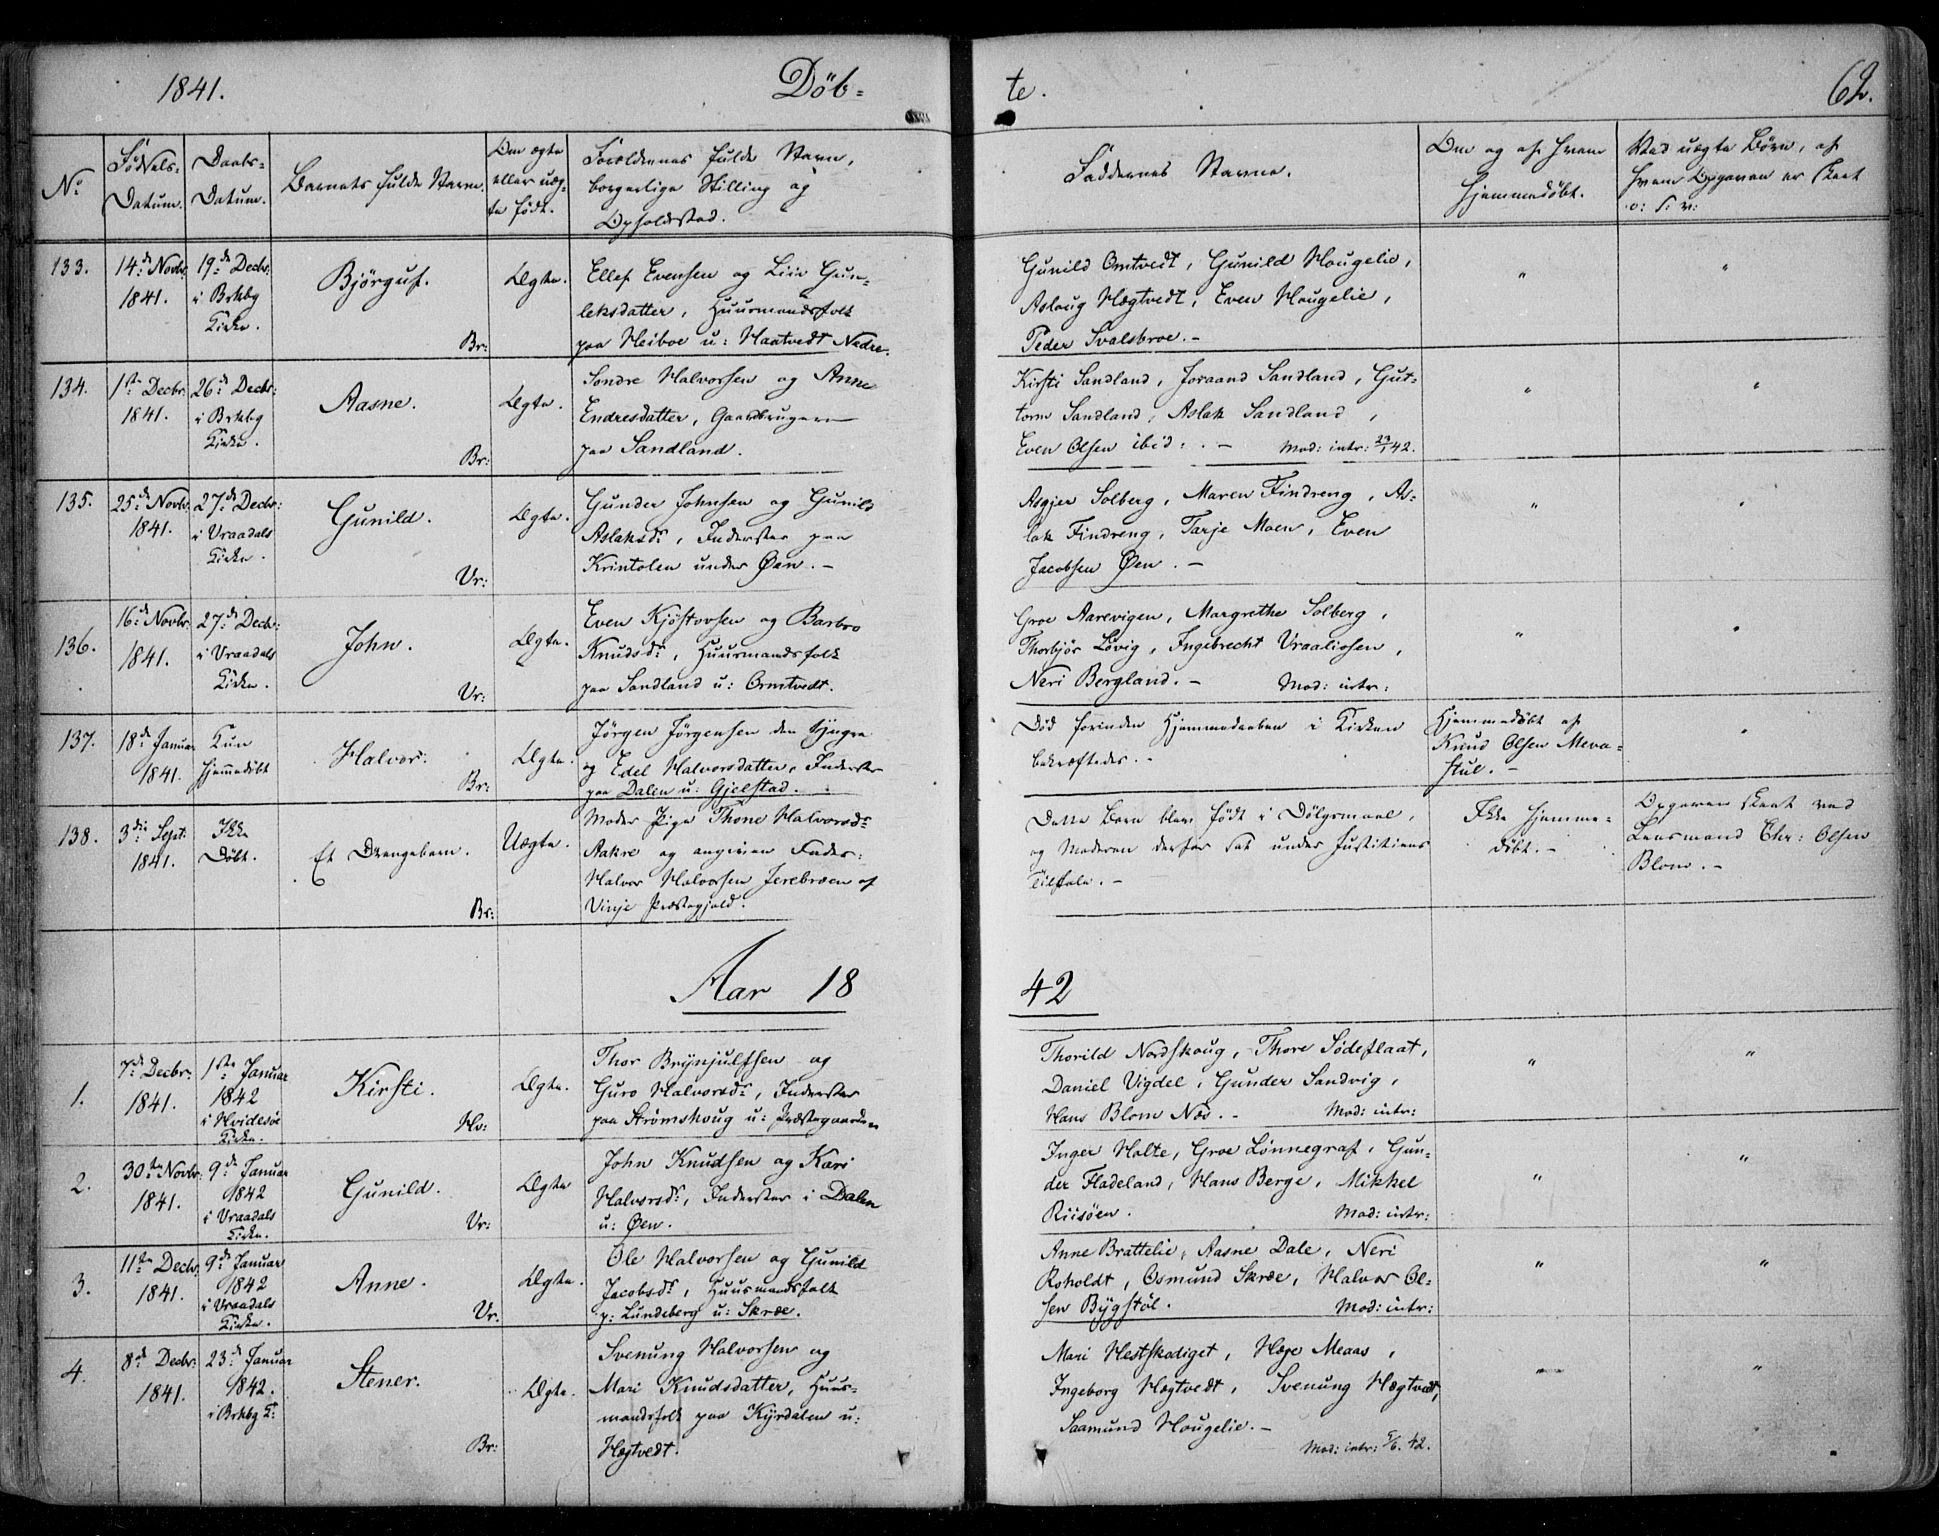 1841.
Döb=
te.
62.
No
Födsels-
Datum.
Daabs-
Datum.
Barnets fulde Navn.
Om ægte
eller uæg-
te født.
Forældrenes fulde Navn,
borgerlige Stilling og
Opholdssted.
Faddernes Navne.
Om og af hvem
hjemmedøbt.
Ved uægte Børn, af
hvem Opgaven er skeet
o: s: v:
133.
14de Novbr:
1841.
19de Decbr:
i Brkbg
Kirke.
Bjørguf.
Br:
Ægte.
Ellef Evensen og Liv Gun-
leksdatter, Huusmandsfolk
paa Heiboe u: Haatvedt Nedre.
Gunild Omtvedt, Gunild Hougelie,
Aslaug Hægtvedt, Even Hougelie,
Peder Svalsbroe. -
"
"
134.
1ste Decbr:
1841.
26de Decbr:
i Brkbg
Kirke.
Aasne.
Br:
Ægte.
Sondre Halvorsen og Anne
Endresdatter, Gaardbrugere
paa Sandland.
Kirsti Sandland, Joraand Sandland, Gut-
torm Sandland, Aslak Sandland,
Even Olsen ibid: . - Mod: intr: 23/1 42.
"
"
135.
25de Novbr:
1841.
27de Decbr:
i Vraadals
Kirke.
Gunild.
Vr:
Ægte.
Gunder Johnsen og Gunild
Aslaksdr, Inderster paa
Krintolen under Øen. -
Asgjer Solberg, Maren Findreng, As-
lak Findreng, Tarje Moen, Even
Jacobsen Øen. -
"
"
136.
16de Novbr:
1841.
27de Decbr:
i Vraadals
Kirke.
John.
Vr:
Ægte.
Even Kjøstovsen og Barbro
Knudsdr, Huusmandsfolk
paa Sandland u: Omtvedt.
Groe Aarevigen, Margrethe Solberg,
Thorbjør Løvig, Ingebrecht Vraaliosen,
Neri Bergland. - Mod: intr:
"
"
137.
18de Januar
1841.
Kun
hjemmedöbt
Halvor.
Br:
Ægte.
Jörgen Jörgensen den Yngre
og Edel Halvorsdatter, Inderster
paa Dalen u: Gjelstad.
Død forinden Hjemmedaaben i Kirken
bekræftedes. -
Hjemmedøbt af
Knud Olsen Meva-
stul. -
"
138.
3die Sept:
1841.
Ikke
Döbt.
Et Drengebarn.
Br:
Uægte.
Moder Pige Thone Halvorsdr
Aakre og angiven Fader:
Halvor Halvorsen Jerebroen af
Vinje Præstegjeld.
Dette Barn blev født i Dölgsmaal,
og Moderen derfor sat under Justitiens
Tiltale. -
Ikke Hjemme-
døbt. -
Opgaven skeet ved
Lensmand Chr: Olsen
Blom. -
Aar 18
42
1.
7de Decbr:
1841.
1ste Januar
1842
i Hvidesöe
Kirke.
Kirsti.
Hv:
Ægte.
Thor Brynjulfsen og
Guro Halvorsdr, Inderster
paa Strömskoug u: Præstegaarden
Thorild Nordskoug, Thore Södeflaat,
Daniel Vigdel, Gunder Sandvig,
Hans Blom Næs. - Mod: intr:
"
"
2.
30te Novbr:
1841.
9de Januar
1842
i Vraadals
Kirke.
Gunild.
Vr:
Ægte
John Knudsen og Kari
Halvorsdr, Inderster i Dalen
u: Øen.
Inger Holte, Groe Lønnegraf, Gun-
der Fladeland, Hans Berge, Mikkel
Riisöen. Mod: intr:
"
"
3.
11te Decbr:
1841.
9de Januar
1842
i Vraadals
Kirke.
Anne.
Vr.
Ægte.
Ole Halvorsen og Gunild
Jacobsdr, Huusmandsfolk
p: Lundeberg u: Skræe.
Anne Brattelie, Aasne Dale, Neri
Roholdt, Osmund Skræe, Halvor Ol-
sen Bygstöl. Mod: intr:
"
"
4.
8de Decbr:
1841.
23de Januar
1842.
i Brkbg K:
Stener.
Br:
Ægte.
Svenung Halvorsen og
Mari Knudsdatter, Huus-
mandsfolk paa Kyrdalen u:
Hægtvedt.
Mari Hestskodiget, Hæge Meaas,
Ingeborg Hægtvedt, Svenung Hægtvedt,
Saamund Hougelie. -
Mod: intr: 5/6. 42.
"
"